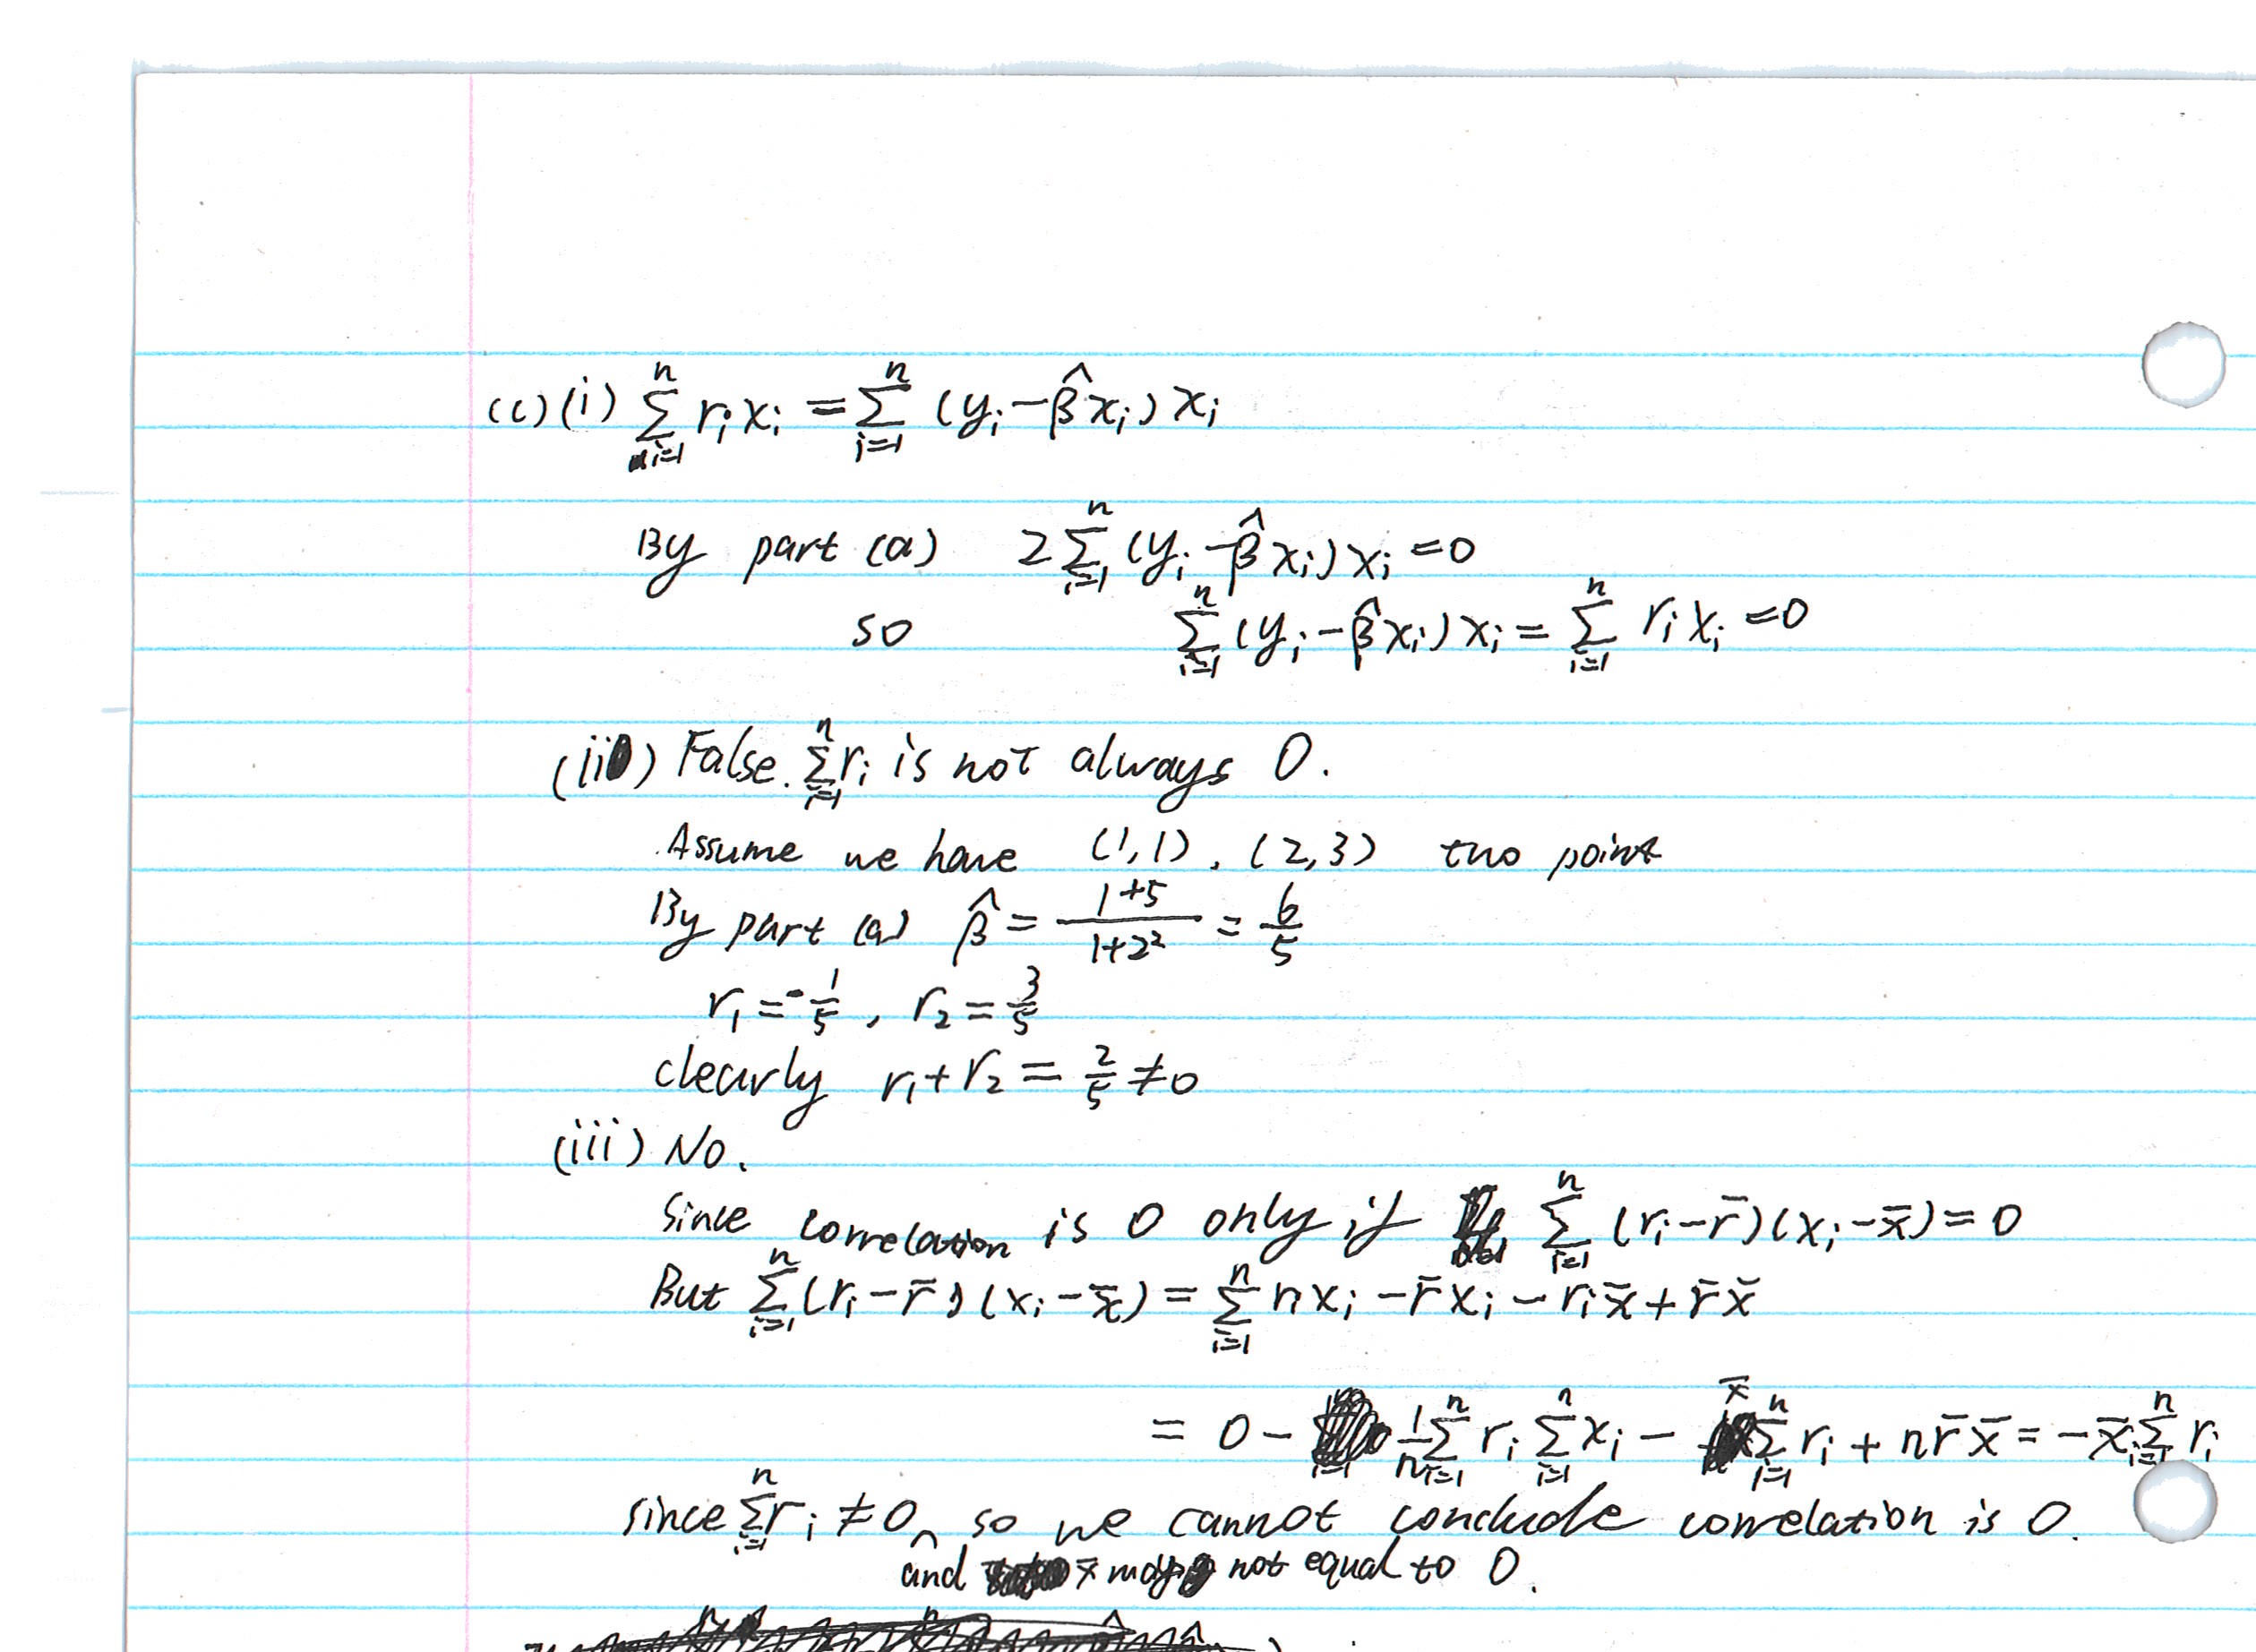 (c) (i) \sum_{i=1}^{n} r_i x_i = \sum_{i=1}^{n} (y_i - \hat{\beta} x_i) x_i
By part (a) 2 \sum_{i=1}^{n} (y_i - \hat{\beta} x_i) x_i = 0
so \sum_{i=1}^{n} (y_i - \hat{\beta} x_i) x_i = \sum_{i=1}^{n} r_i x_i = 0
(ii) False. \sum_{i=1}^{n} r_i is not always 0.
Assume we have (1,1), (2,3) two point
By part (a) \hat{\beta} = \frac{1+5}{1+2^2} = \frac{6}{5}
r_1 = -\frac{1}{5}, r_2 = \frac{3}{5}
clearly r_1 + r_2 = \frac{2}{5} ≠ 0
(iii) No.
Since correlation is 0 only if \sum_{i=1}^{n} (r_i - \bar{r})(x_i - \bar{x}) = 0
But \sum_{i=1}^{n} (r_i - \bar{r})(x_i - \bar{x}) = \sum_{i=1}^{n} r_i x_i - \bar{r} x_i - r_i \bar{x} + \bar{r} \bar{x}
= 0 - \frac{1}{n} \sum_{i=1}^{n} r_i \sum_{i=1}^{n} x_i - \bar{x} \sum_{i=1}^{n} r_i + n \bar{r} \bar{x} = -\bar{x} \sum_{i=1}^{n} r_i
since \sum_{i=1}^{n} r_i ≠ 0 ^ so we cannot conclude correlation is 0.
and \bar{x} may not equal to 0.